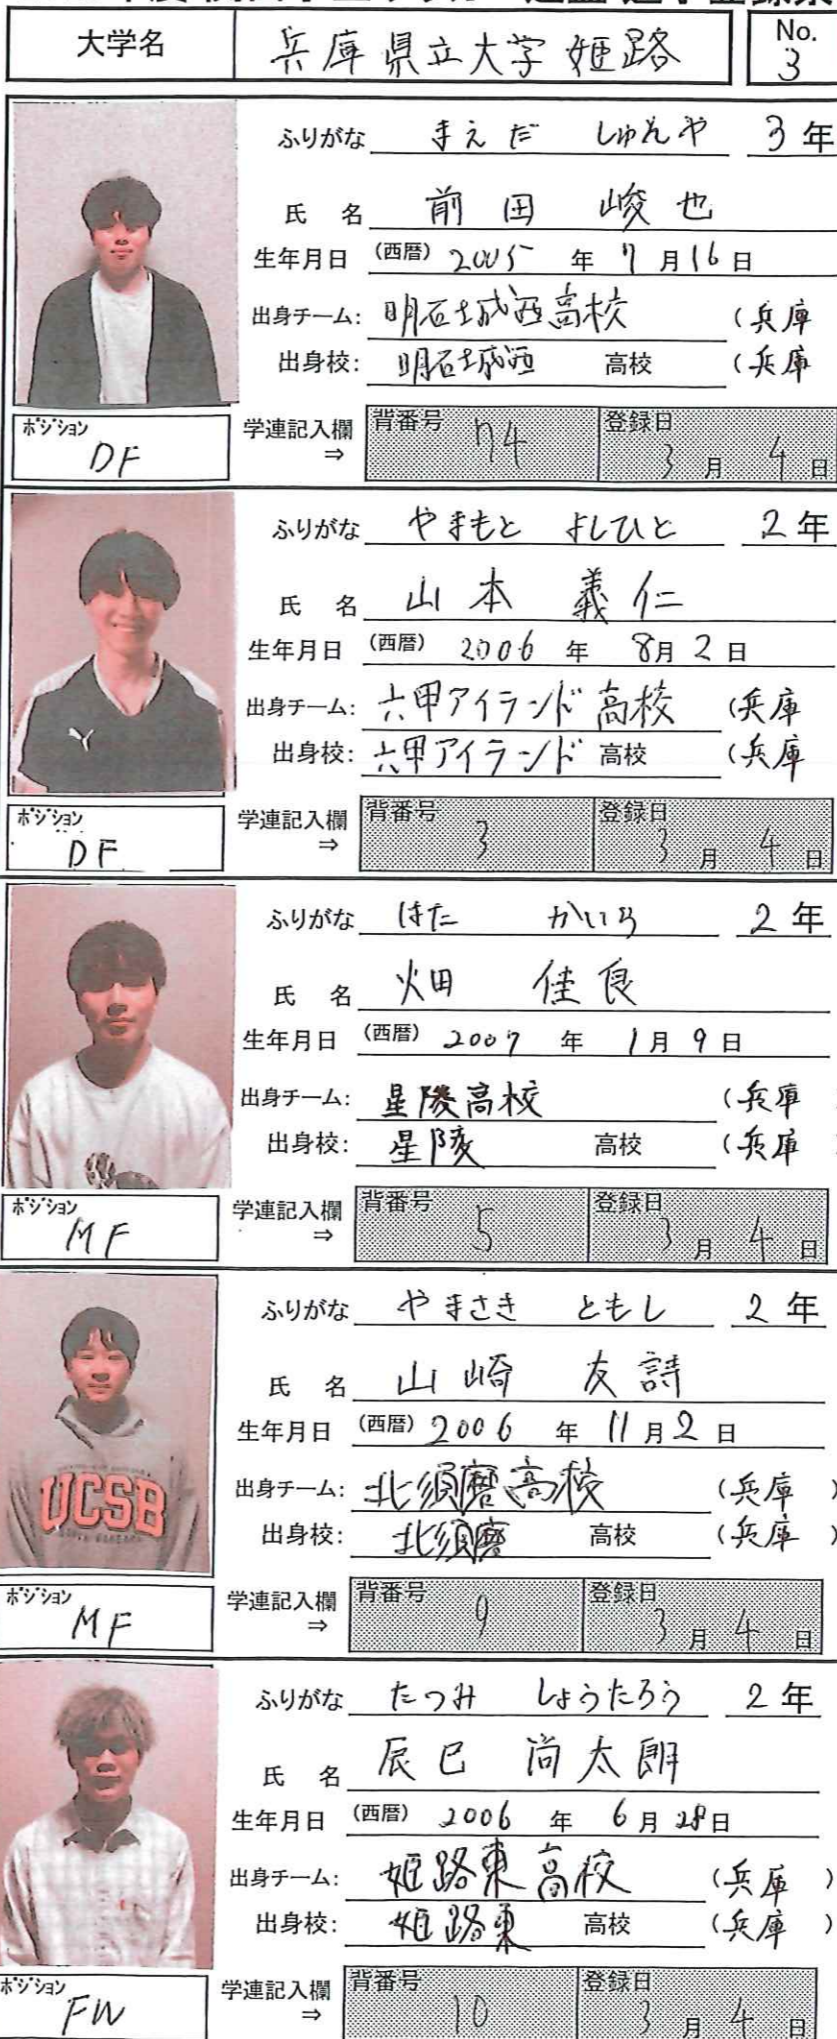 大学名 兵庫県立大学姫路 No. 3
ふりがな まえだ しゅんや 3年
氏名 前田 峻也
生年月日 (西暦) 2005年 7月16日
出身チーム: 明石城西高校 (兵庫
出身校: 明石城西 高校 (兵庫
ポジション DF 学連記入欄 ⇒ 背番号 74 登録日 3月 4日
ふりがな やまもと よしひと 2年
氏名 山本 義仁
生年月日 (西暦) 2006年 8月2日
出身チーム: 六甲アイランド高校 (兵庫
出身校: 六甲アイランド 高校 (兵庫
ポジション DF 学連記入欄 ⇒ 背番号 3 登録日 3月 4日
ふりがな はた かいら 2年
氏名 畑 佳良
生年月日 (西暦) 2007年 1月9日
出身チーム: 星陵高校 (兵庫
出身校: 星陵 高校 (兵庫
ポジション MF 学連記入欄 ⇒ 背番号 5 登録日 3月 4日
ふりがな やまさき ともし 2年
氏名 山崎 友詩
UCSB
生年月日 (西暦) 2006年 11月2日
出身チーム: 北須磨高校 (兵庫)
出身校: 北須磨 高校 (兵庫)
ポジション MF 学連記入欄 ⇒ 背番号 9 登録日 3月 4日
ふりがな たつみ しょうたろう 2年
氏名 辰巳 尚太朗
生年月日 (西暦) 2006年 6月28日
出身チーム: 姫路東高校 (兵庫)
出身校: 姫路東 高校 (兵庫)
ポジション FW 学連記入欄 ⇒ 背番号 10 登録日 3月 4日